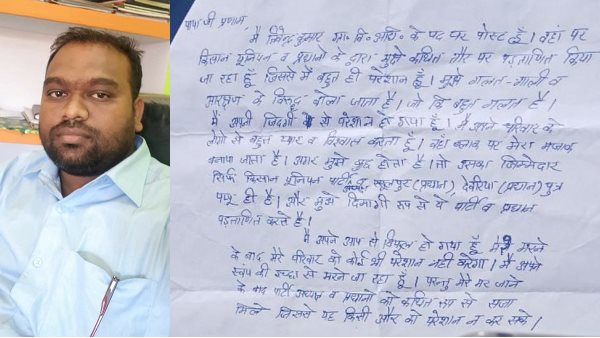 पापा जी प्रणाम,
मैं त्रिवेन्द्र कुमार ग्रा. वि. अधि. के पद पर पोस्ट हूँ। वहां पर
किसान यूनियन व प्रधानों के द्वारा मुझे कथित तौर पर प्रताणित किया
जा रहा हूँ जिससे मैं बहुत ही परेशान हूँ। मुझे गलत-गाली व
आरक्षण के विरुद्ध बोला जाता है। जो कि बहुत गलत है।
मैं अपनी जिंदगी से परेशान हो गया हूँ। मैं अपने परिवार के
लोगो से बहुत प्यार व विश्वास करता हूँ। वहां काम पर मेरा मजाक
बनाया जाता है। अगर मुझे कुछ होता है। तो उसका जिम्मेदार
सिर्फ किसान यूनियन पार्टी व रसूलपुर (प्रधान), देवरिया (प्रधान) पुत्र
पप्पू ही है। और मुझे दिमागी रूप से ये पार्टी व प्रधान
प्रताणित करते है।
मैं अपने आप से विफल हो गया हूँ मेरे मरने
के बाद मेरे परिवार को कोई भी परेशान नहीं करेगा। मैं अपने
स्वंय की इच्छा से मरने जा रहा हूँ। परन्तु मेरे मर जाने
के बाद पार्टी अध्यक्ष व प्रधानों को कथित रूप से सजा
मिले जिससे यह किसी और को परेशान न कर सके।